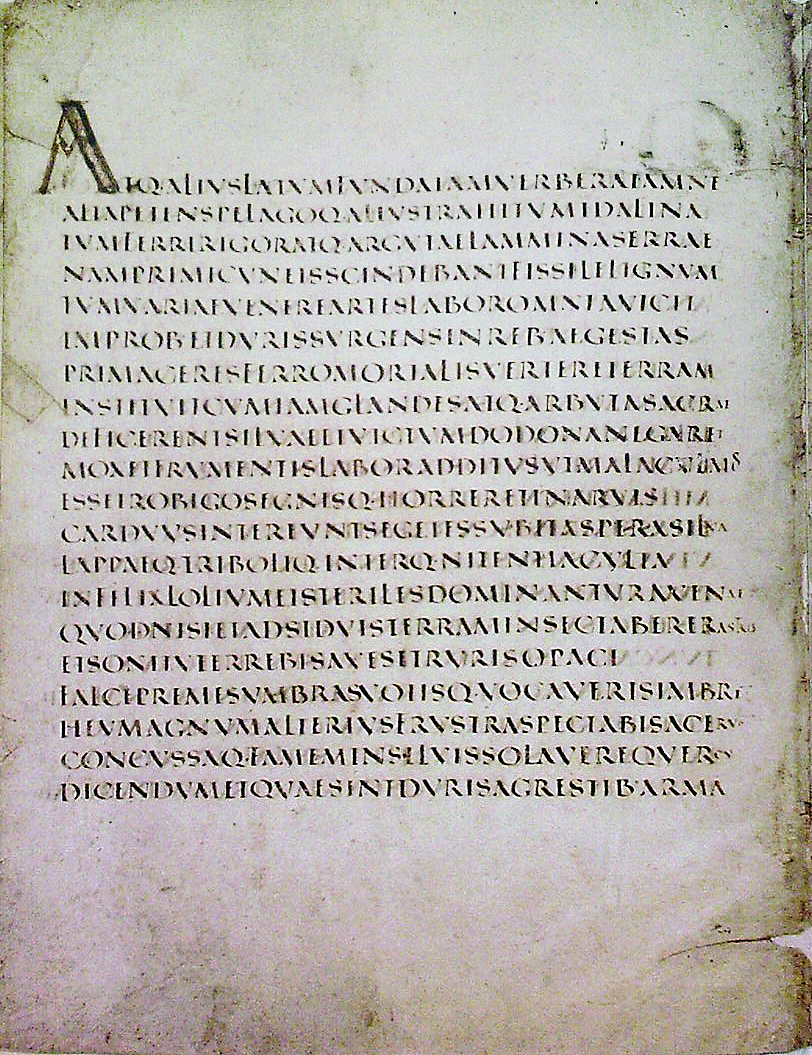 ATQALIVSLATVMFVNDAIAMVERBERATAMNE
ALTAPETENSPELAGOQALIVSTRAHITVMIDALINA
TVMFERRIRIGORATQARGVTAELAMMINASERRAE
NAMPRIMICVNEISSCINDEBANTFISSILELIGNVM
TVMVARIAEVENEREARTESLABOROMNIAVICIT
IMPROBETDVRISSVRGENSINREBAEGESTAS
PRIMACERESFERROMORTALISVERTERETERRAM
INSTITVITCVMIAMGLANDESATQARBVTASACRAE
DEFICERENTSILVAEETVICTVMDODONANEGARET
MOXETFRVMENTISLABORADDITVSVTMALACVLMOS
ESSETROBIGOSEGNISQHORRERETINARVIS
CARDVVSINTEREVNTSEGETESSVBITASPERASILVA
LAPPAEQTRIBOLIQINTERQNITENTIACVLTA
INFELIXLOLIVMETSTERILESDOMINANTVRAVENAE
QVODNISIETADSIDVISTERRAMINSECTABERERASTRIS
ETSONITVTERREBISAVESETRVRISOPACI
FALCEPREMESVMBRASVOTISQVOCAVERISIMBRE
HEVMAGNVMALTERIVSFRVSTRASPECTABISACERVV
CONCVSSAQ·FAMEMINSILVISSOLAVEREQVERCV
DICENDVMETQVAESINTDVRISAGRESTIB·ARMA